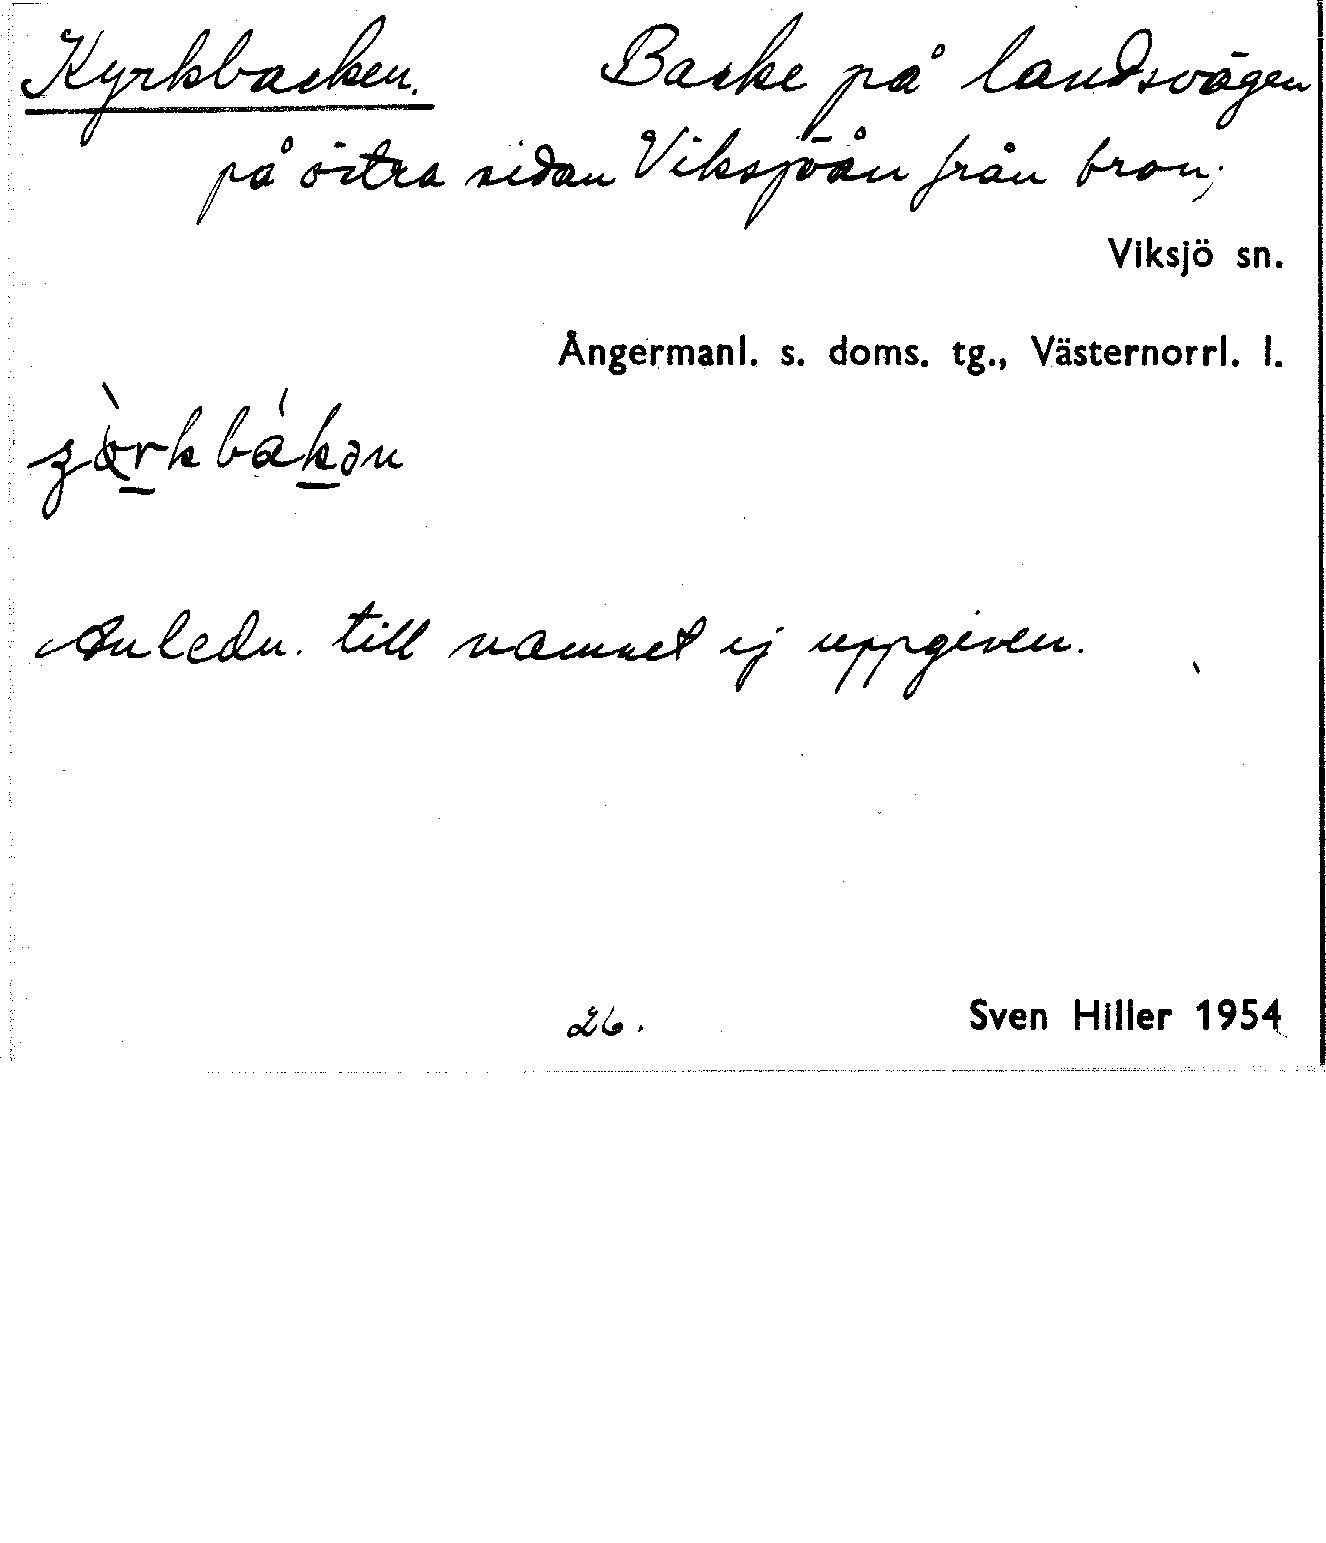 Kyrkbacken. Backe på landsvägen
på östra sidan Viksjöån från bron;
Viksjö sn.
Ångermanl. s. doms. tg., Västernorrl. l.
Anledn. till namnet ej uppgiven.
26. Sven Hiller 1954